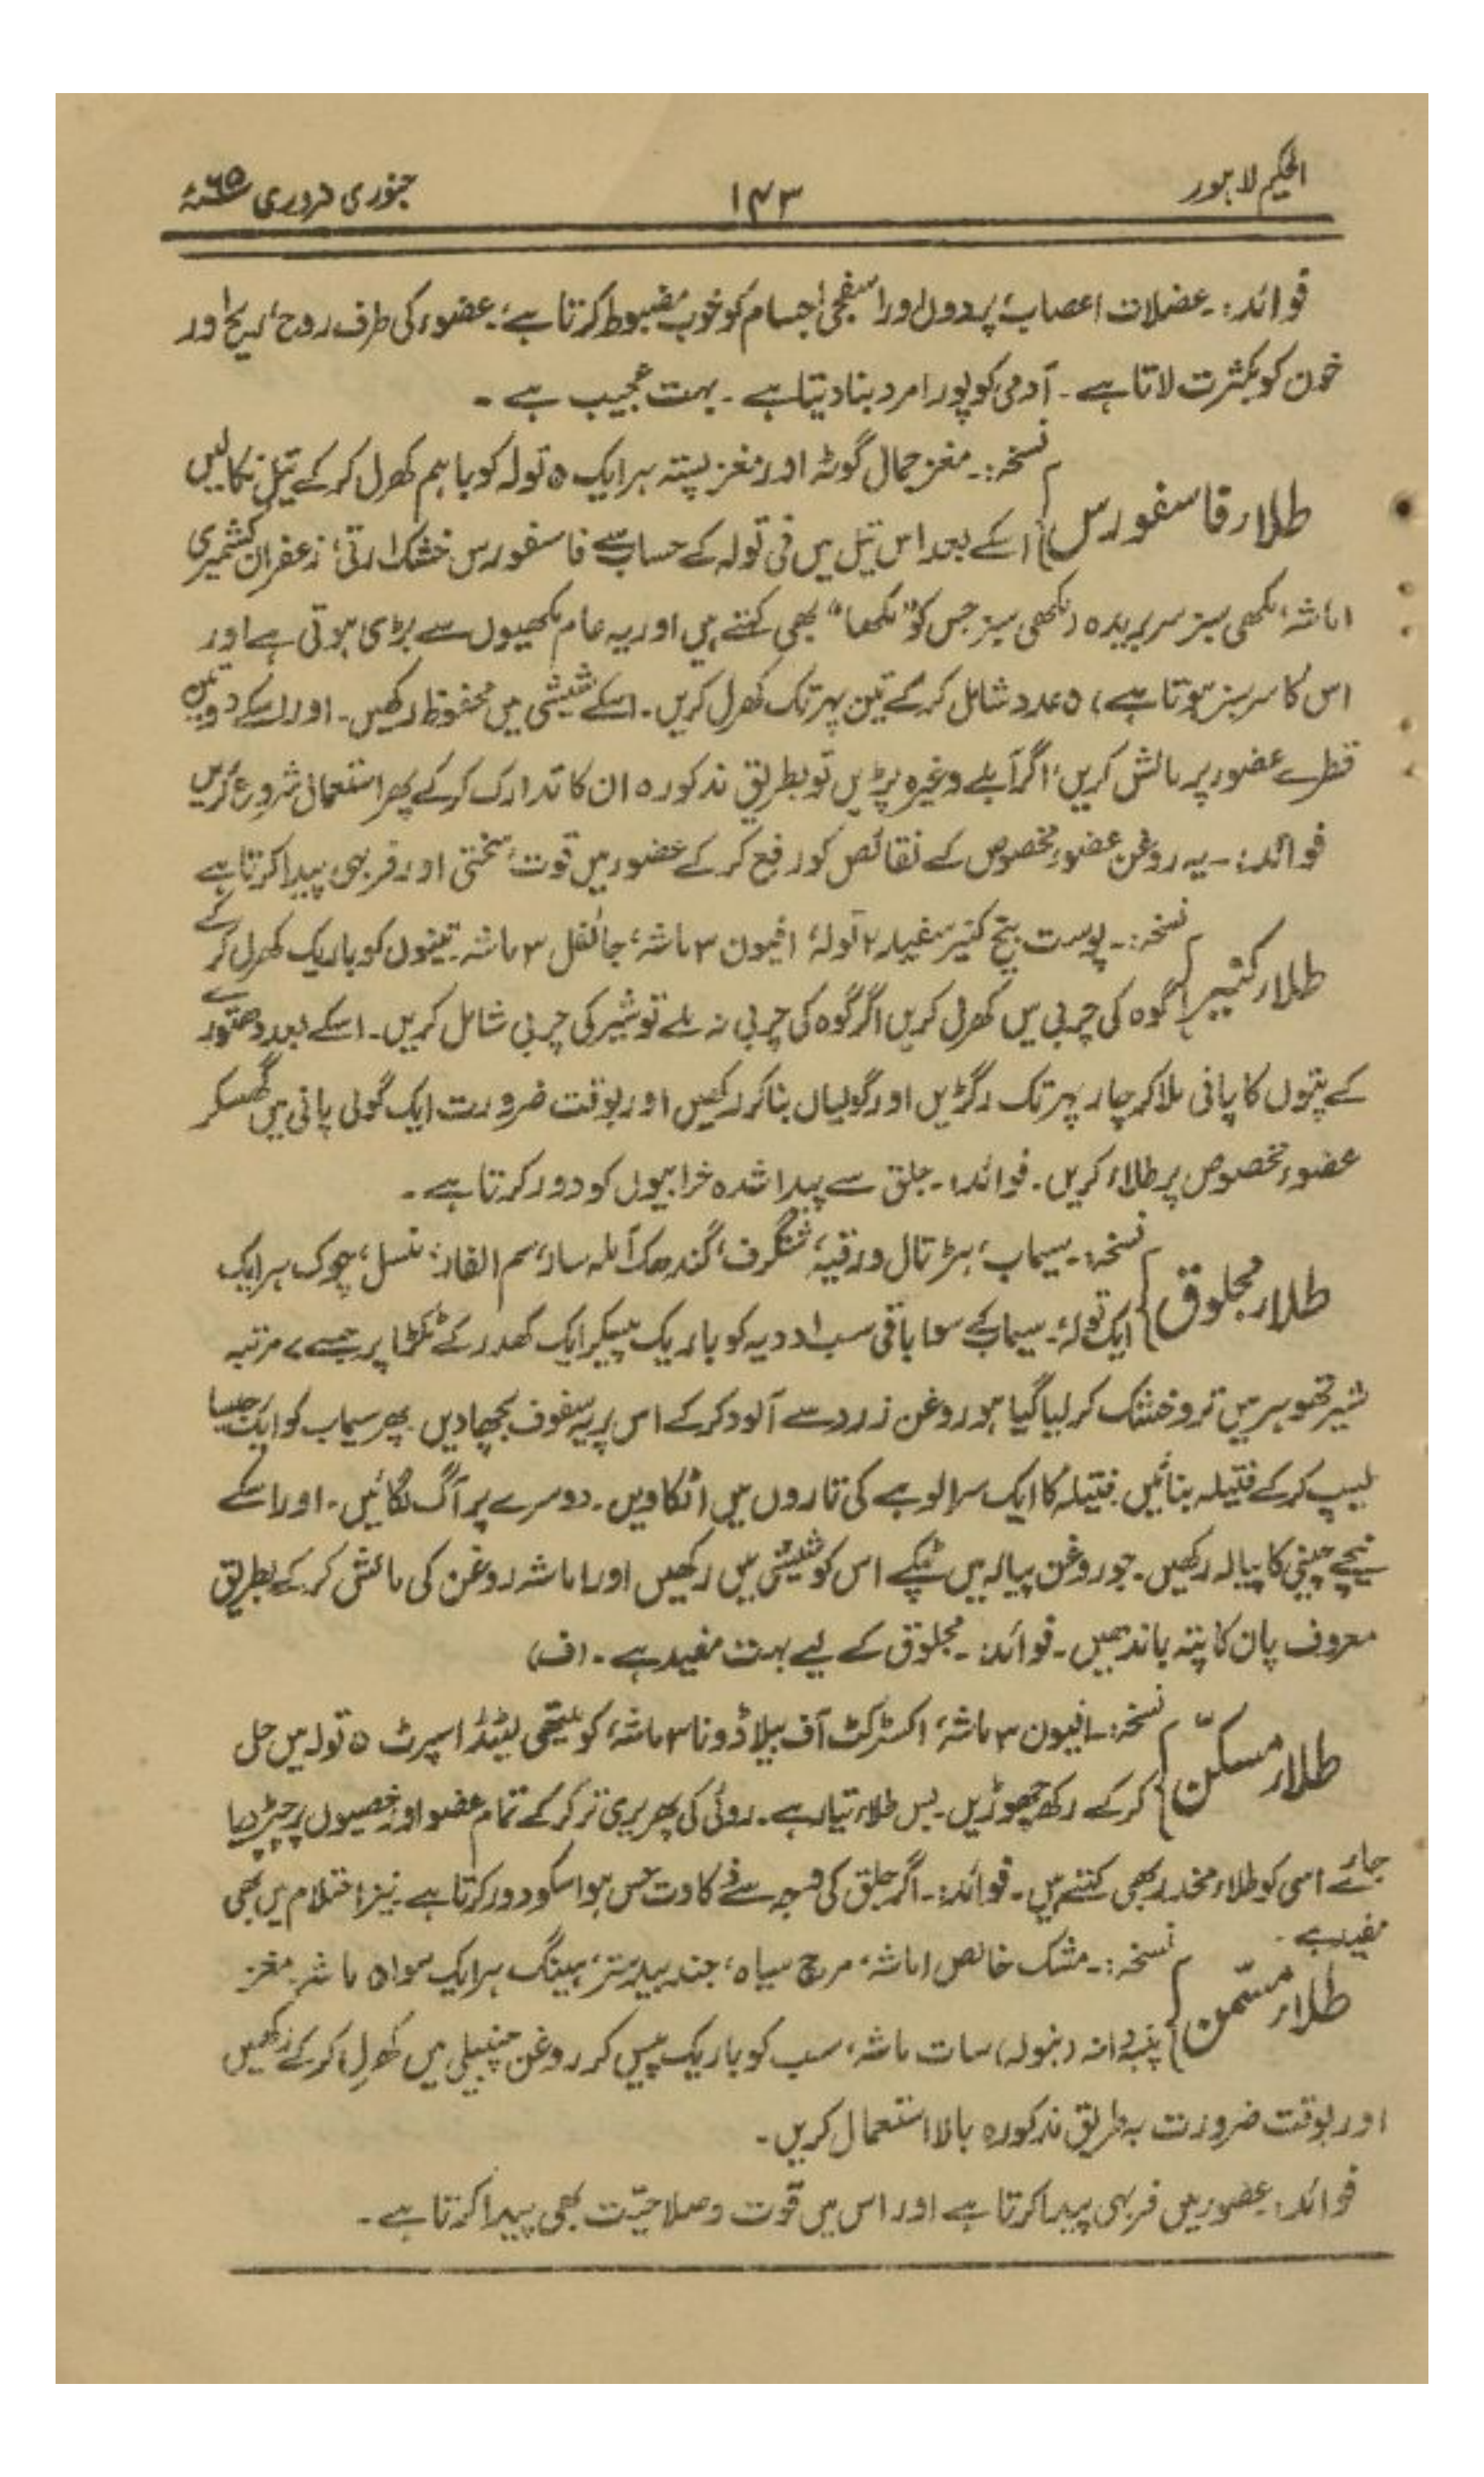 الحکیم لاہور ۱۴۳ جنوری فروری ۶۵ء
فوائد:۔ عضلات اعصاب پردوں اور اسفنجی اجسام کو خوب مضبوط کرتا ہے۔ عضو کی طرف روح، ریح اور
خون کو بکثرت لاتا ہے۔ آدمی کو پورا مرد بنا دیتا ہے۔ بہت عجیب ہے۔
نسخہ:۔ مغز جمال گوٹہ اور مغز پستہ ہر ایک ۵ تولہ کو باہم کھرل کر کے تیل نکالیں
طلاء فاسفورس اسکے بعد اس تیل میں فی تولہ کے حساب سے فاسفورس خشک ۱ رتی، زعفران کشمیری
۱ ماشہ، مکھی سبز سر بریدہ (مکھی سبز جس کو "مکھا" بھی کہتے ہیں اور یہ عام مکھیوں سے بڑی ہوتی ہے اور
اس کا سر سبز ہوتا ہے) ۵ عدد شامل کر کے تین پہر تک کھرل کریں۔ اسکے شیشی میں محفوظ رکھیں۔ اور اسکے دو تین
قطرے عضو پر مالش کریں، اگر آبلے وغیرہ پڑیں تو بطریق مذکورہ ان کا تدارک کر کے پھر استعمال شروع کریں
فوائد:۔ یہ روغن عضو مخصوص کے نقائص کو رفع کر کے عضو میں قوت، سختی اور فربہی پیدا کرتا ہے
نسخہ:۔ پوست بیخ کنیر سفید ۲ تولہ، افیون ۳ ماشہ، جائفل ۳ ماشہ تینوں کو باریک کھرل کر کے
طلاء کنیر گوہ کی چربی میں کھرل کریں اگر گوہ کی چربی نہ ملے تو شیر کی چربی شامل کریں۔ اسکے بعد دھتورے
کے پتوں کا پانی ملا کر چار پہر تک رگڑیں اور گولیاں بنا کر رکھیں اور بوقت ضرورت ایک گولی پانی میں گھسکر
عضو مخصوص پر طلاء کریں۔ فوائد:۔ جلق سے پیدا شدہ خرابیوں کو دور کرتا ہے۔
نسخہ:۔ سیماب، ہڑتال ورقیہ، شنگرف، گندھک آملہ سار، سم الفار، منسل، چوک ہر ایک
طلاء مجلوق ایک تولہ۔ سیماب کے سوا باقی سب ادویہ کو باریک پیسکر ایک کھدر کے ٹکڑا پر جسے ۷ مرتبہ
شیر تھوہر میں تر و خشک کر لیا گیا ہو روغن زرد سے آلود کر کے اس پر یہ سفوف بچھا دیں۔ پھر سیماب کو ایک جیسا
لیپ کر کے فتیلہ بنائیں۔ فتیلہ کا ایک سرا لوہے کی تاروں میں اٹکا دیں۔ دوسرے پر آگ لگائیں۔ اور اسکے
نیچے چینی کا پیالہ رکھیں۔ جو روغن پیالہ میں ٹپکے اس کو شیشی میں رکھیں اور ۱ ماشہ روغن کی مالش کر کے بطریق
معروف پان کا پتہ باندھیں۔ فوائد:۔ مجلوق کے لیے بہت مفید ہے۔ (ف)
نسخہ:۔ افیون ۳ ماشہ، اکسٹرکٹ آف بیلاڈونا ۳ ماشہ، کو میتھی لیٹڈ اسپرٹ ۵ تولہ میں حل
طلاء مسکّن کر کے رکھ چھوڑیں۔ بس طلاء تیار ہے۔ روئی کی پھریری تر کر کے تمام عضو اور خصیوں پر چپڑ دیا
جائے اسی کو طلاء مخدر بھی کہتے ہیں۔ فوائد:۔ اگر جلق کی وجہ سے ذکاوت حس ہو اسکو دور کرتا ہے۔ نیز احتلام میں بھی
مفید ہے۔
نسخہ:۔ مشک خالص ۱ ماشہ، مرچ سیاہ، جندبیدستر، ہینگ ہر ایک سوا ۵ ماشہ۔ مغز
طلاء مسمّن پنبہ دانہ (بنولہ) سات ماشہ، سب کو باریک پیس کر روغن چنبیلی میں کھرل کر کے رکھیں
اور بوقت ضرورت بہ طریق مذکورہ بالا استعمال کریں۔
فوائد: عضو میں فربہی پیدا کرتا ہے اور اس میں قوت و صلاحیّت بھی پیدا کرتا ہے۔